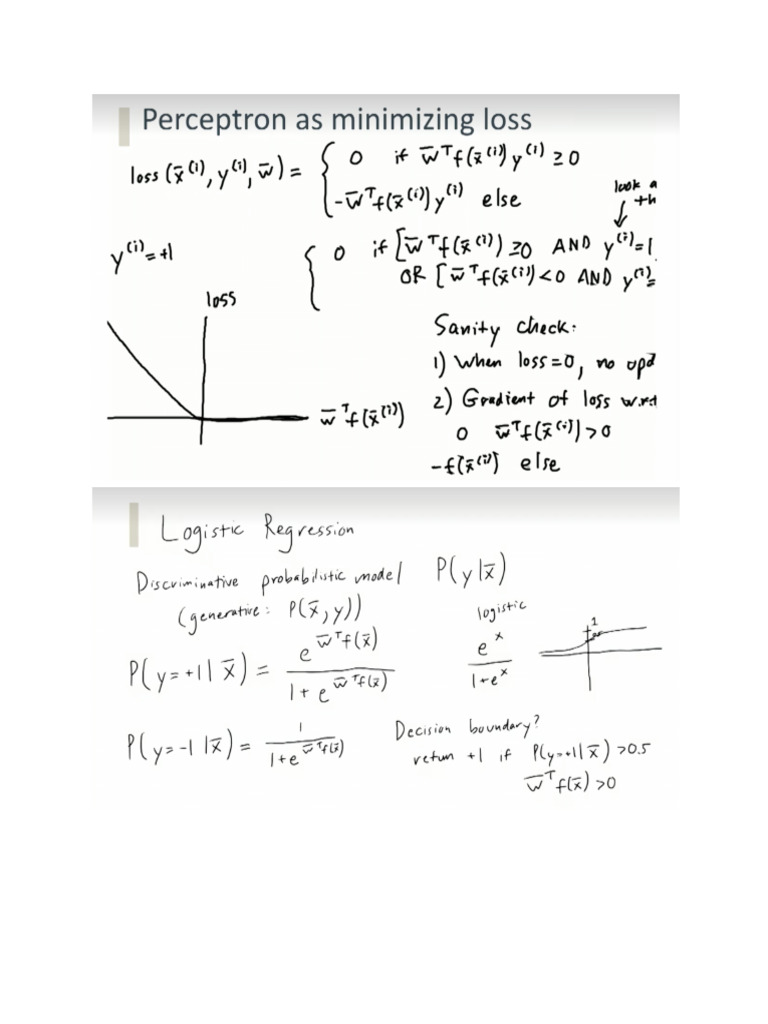 Perceptron as minimizing loss
loss (x̄⁽ⁱ⁾, y⁽ⁱ⁾, w̄) = { 0 if w̄ᵀf(x̄⁽ⁱ⁾) y⁽ⁱ⁾ ≥ 0
-w̄ᵀf(x̄⁽ⁱ⁾) y⁽ⁱ⁾ else
look a
th
y⁽ⁱ⁾ = +1
{ 0 if [w̄ᵀf(x̄⁽ⁱ⁾) ≥ 0 AND y⁽ⁱ⁾ = 1
OR [w̄ᵀf(x̄⁽ⁱ⁾) < 0 AND y⁽ⁱ⁾ =
loss
w̄ᵀf(x̄⁽ⁱ⁾)
Sanity check:
1) When loss = 0, no upd
2) Gradient of loss w.r.t
0 w̄ᵀf(x̄⁽ⁱ⁾) > 0
-f(x̄⁽ⁱ⁾) else
Logistic Regression
Discriminative probabilistic model P(y|x̄)
(generative: P(x̄, y))
P(y = +1 | x̄) = e^(w̄ᵀf(x̄)) / (1 + e^(w̄ᵀf(x̄)))
logistic
e^x / (1 + e^x)
1
P(y = -1 | x̄) = 1 / (1 + e^(w̄ᵀf(x̄)))
Decision boundary?
return +1 if P(y = +1 | x̄) > 0.5
w̄ᵀf(x̄) > 0